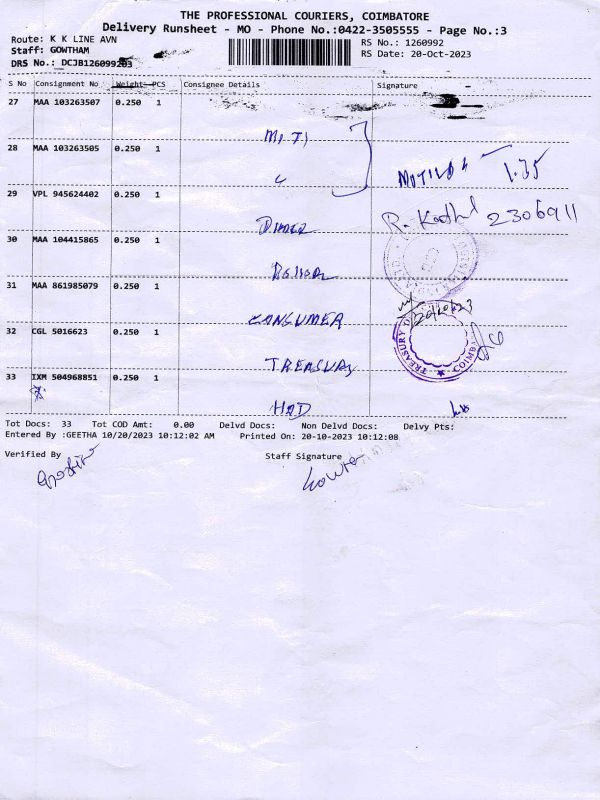 THE PROFESSIONAL COURIERS, COIMBATORE
Delivery Runsheet - MO - Phone No.:0422-3505555 - Page No.:3
Route: K K LINE AVN
RS No.: 1260992
Staff: GOWTHAM
RS Date: 20-Oct-2023
DRS No.: DCJB126099203
S No Consignment No Weight PCS Consignee Details Signature
27 MAA 103263507 0.250 1
28 MAA 103263505 0.250 1
1.35
29 VPL 945624402 0.250 1
2306911
30 MAA 104415865 0.250 1
31 MAA 861985079 0.250 1
CONSUMER
32 CGL 5016623 0.250 1
TREASURY
33 IXM 504968851 0.250 1
Tot Docs: 33 Tot COD Amt: 0.00 Delvd Docs: Non Delvd Docs: Delvy Pts:
Entered By :GEETHA 10/20/2023 10:12:02 AM Printed On: 20-10-2023 10:12:08
Verified By Staff Signature